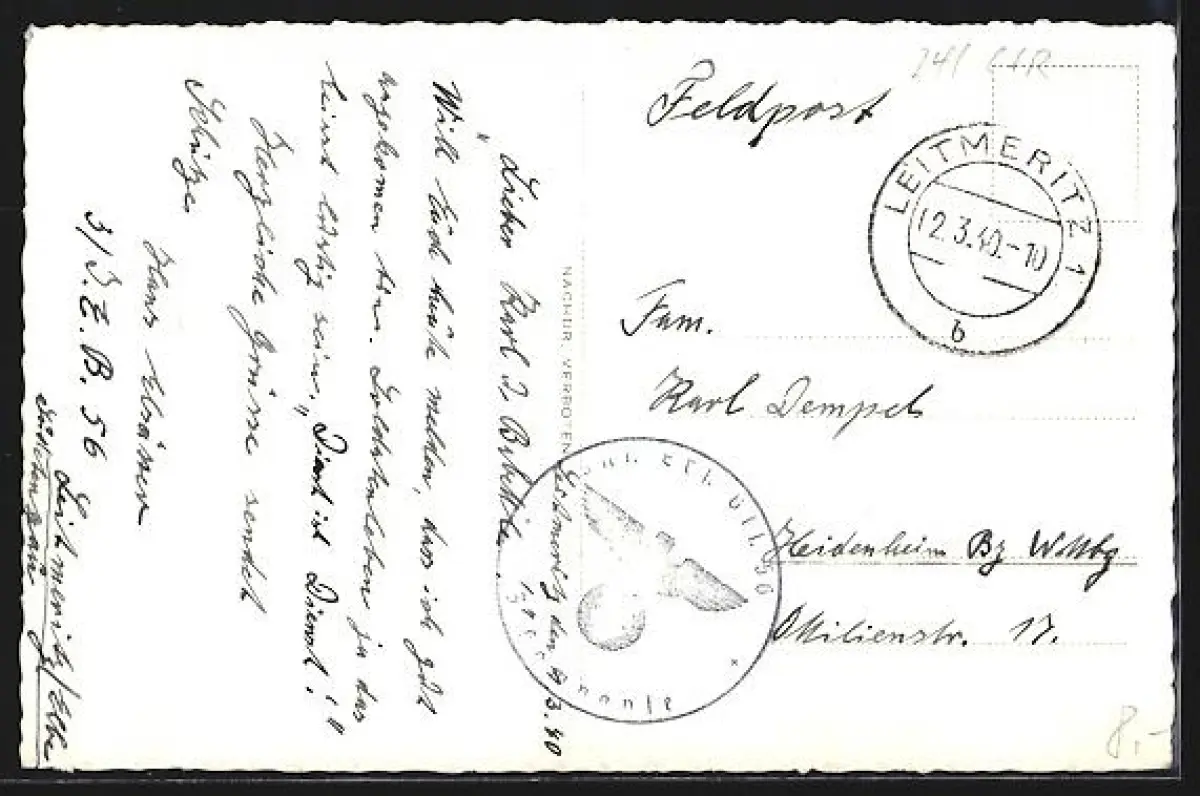 241 CSR
Feldpost
LEITMERITZ 1
12.3.40.-10
b
Fam.
Karl Dempel
Heidenheim Bz Wttbg
Ottilienstr. 17.
8,-
NACHDR. VERBOTEN
Leitmeritz den 9/3.40
Lieber Karl
Will Euch heute melden, das ich gut
angekommen bin. Soldatenleben ja das
lustig sein, „Dienst ist Dienst!"
Herzliche Grüsse sendet
Schütze
Hans
3/I.E.B. 56 Leitmeritz/Elbe
Sudetengau